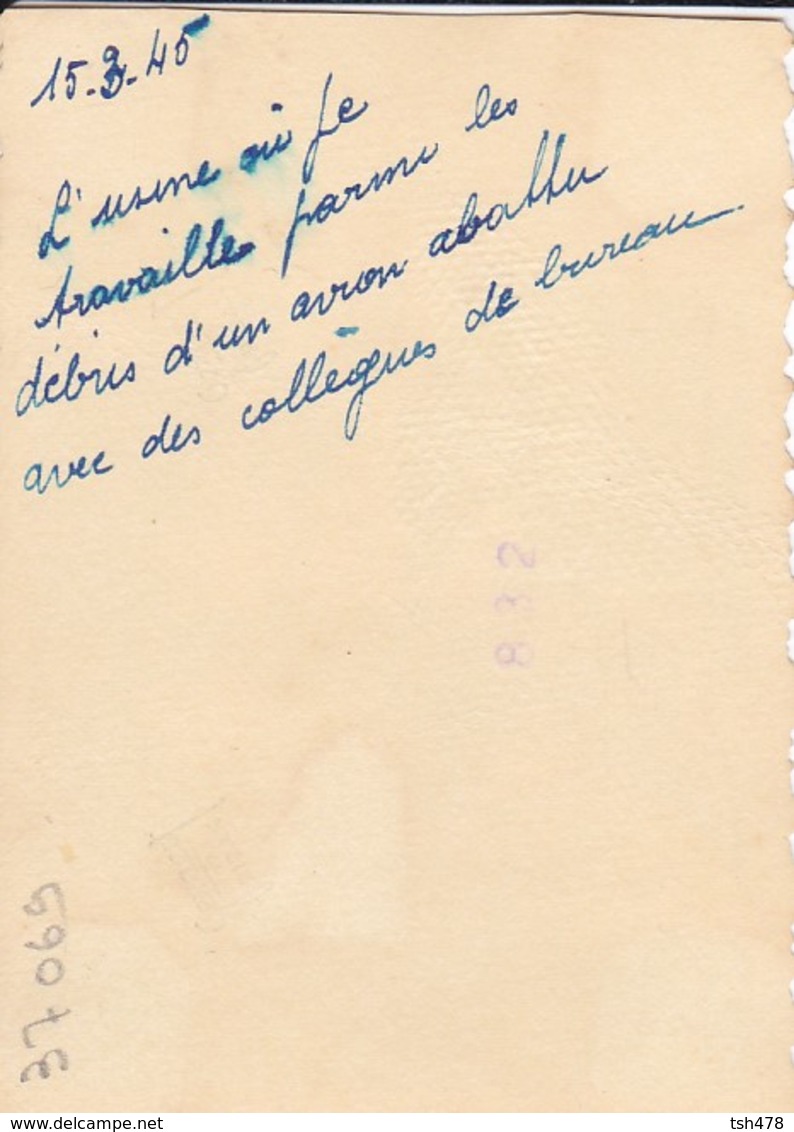 15.3.45
L'usine où je
travaille parmi les
débris d'un avion abattu
avec des collègues de bureau.
832
37 065
www.delcampe.net
tsh478